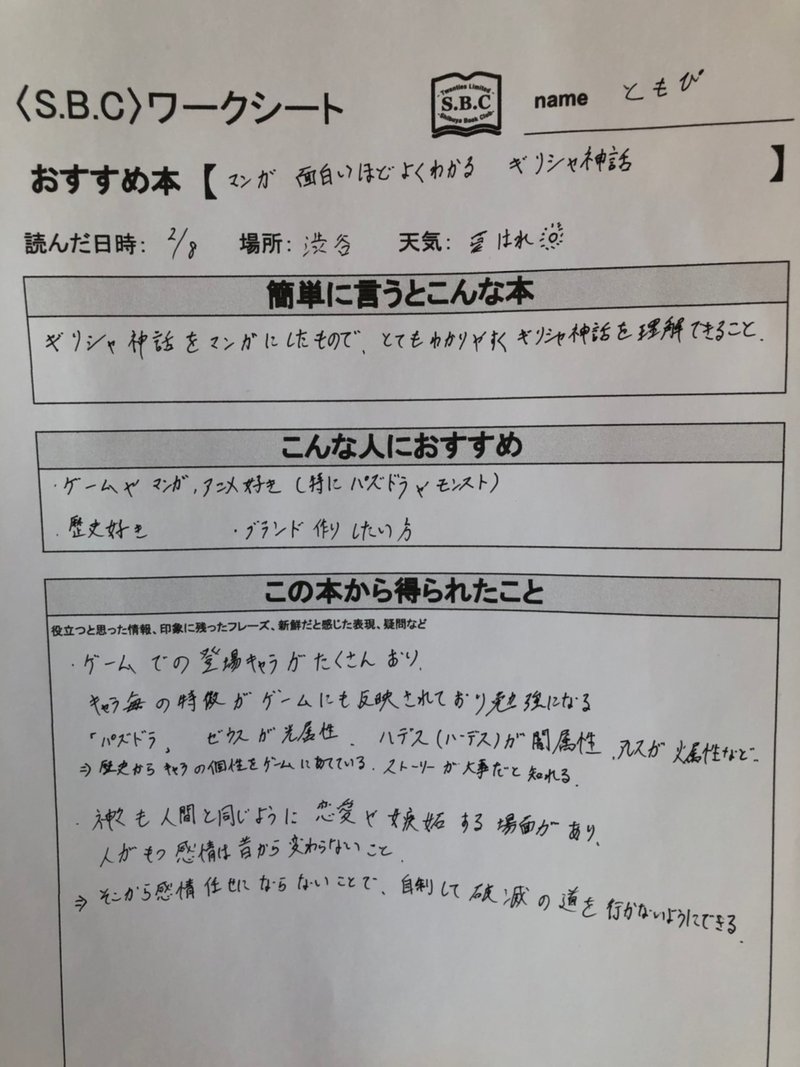 〈S.B.C〉ワークシート
Twenties Limited
S.B.C
Shibuya Book Club
name ともび
おすすめ本【マンガ 面白いほどよくわかる ギリシャ神話】
読んだ日時: 2/8 場所: 渋谷 天気: はれ
簡単に言うとこんな本
ギリシャ神話をマンガにしたもので、とてもわかりやすくギリシャ神話を理解できること.
こんな人におすすめ
・ゲームやマンガ,アニメ好き(特にパズドラやモンスト)
・歴史好き ・ブランド作りしたい方
この本から得られたこと
役立つと思った情報、印象に残ったフレーズ、新鮮だと感じた表現、疑問など
・ゲームでの登場キャラがたくさんおり,
キャラ毎の特徴がゲームにも反映されており勉強になる
「パズドラ」 ゼウスが光属性、ハデス(ハーデス)が闇属性、アレスが火属性など…
⇒歴史からキャラの個性をゲームに当てている.ストーリーが大事だと知れる.
・神々も人間と同じように恋愛や嫉妬する場面があり、
人がもつ感情は昔から変わらないこと.
⇒そこから感情任せにならないことで、自制して破滅の道を行かないようにできる.